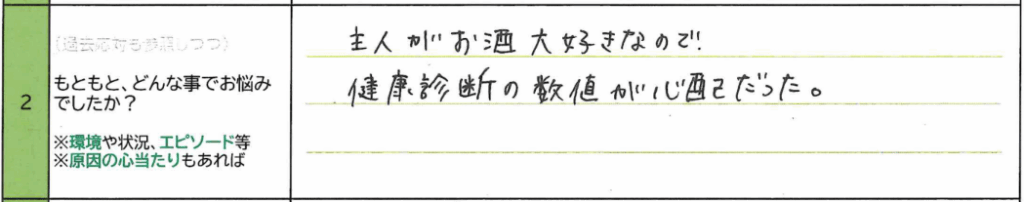 2
(過去応対も参照しつつ)
もともと、どんな事でお悩み
でしたか?
※環境や状況、エピソード等
※原因の心当たりもあれば
主人がお酒大好きなので!
健康診断の数値が心配だった。